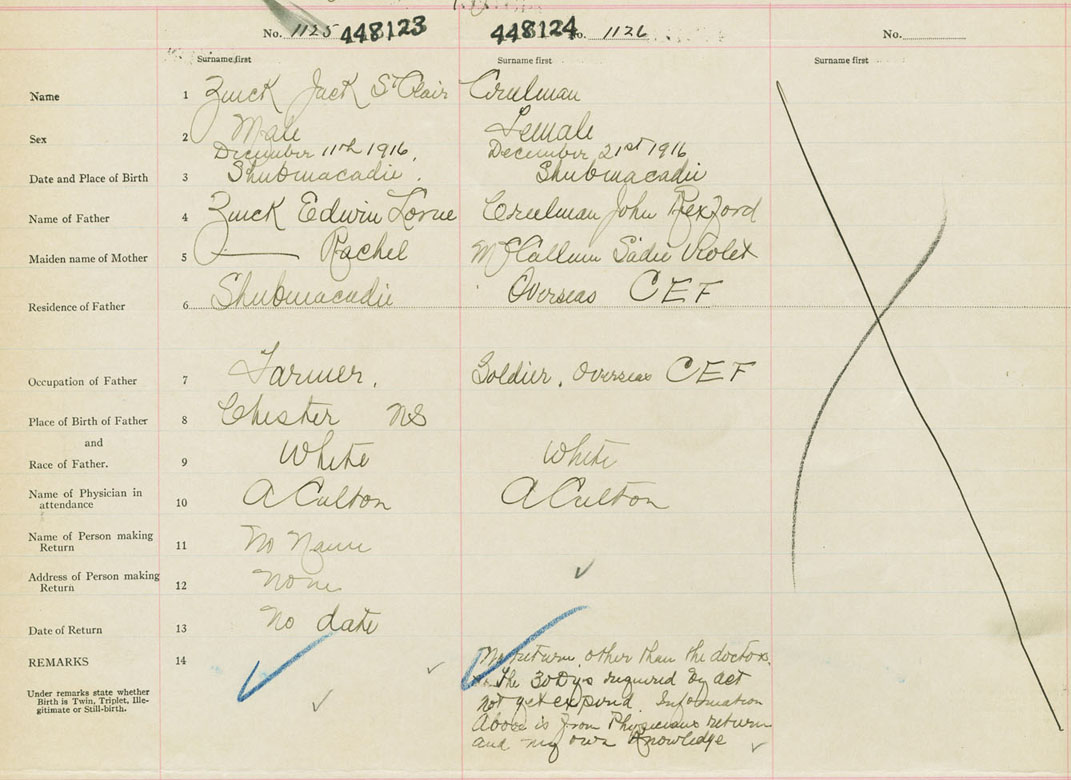 No. 1125 448123 448124 No. 1126 No.
Surname first Surname first Surname first
Name 1 Zwick Jack St Clair Creelman
Sex 2 Male Female
December 11th 1916, December 21st 1916
Date and Place of Birth 3 Shubinacadie. Shubinacadie
Name of Father 4 Zwick Edwin Lorne Creelman John Rexford
Maiden name of Mother 5 Rachel McCallum Sadie Violet
Residence of Father 6 Shubinacadie Overseas CEF
Occupation of Father 7 Farmer, Soldier, Overseas CEF
Place of Birth of Father 8 Chester NS
and
Race of Father. 9 White White
Name of Physician in
attendance 10 A Culton A Culton
Name of Person making
Return 11 No Name
Address of Person making
Return 12 None
Date of Return 13 No date
REMARKS 14
Under remarks state whether
Birth is Twin, Triplet, Ille-
gitimate or Still-birth.
No return, other than the doctors,
The 30 Dys required by act
not yet expired. Information
Above is from Physicians return
and my own Knowledge